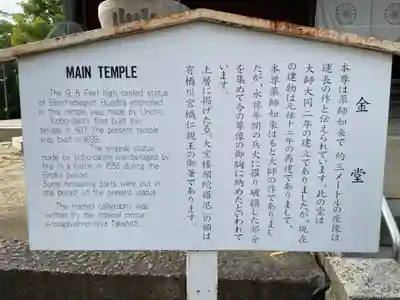 MAIN TEMPLE
The 9. 8 Feet high seated statue
of Bhechadjaguru Buddha enshrined
in this temple was made by Uncho.
Kobo-daishi first built this
temple in 807. The present temple
was built in 1699.
The original statue
made by Kobo-daishi was damaged by
fire in a battle in 1558 during the
Eiroku period.
Some remaining parts were put in
the breast of the present statue.
The framed calligraphy was
written by the imperial prince
Arisugawa-no-miya Takahito.
金堂
本尊は薬師如来で 約三メートルの座像は
運長の作と伝えられています。此の堂は
大師大同二年の建立でありましたが、現在
の建物は元禄十二年の再建でありまして、
本尊薬師如来はもと大師の作でありまし
たが、永禄年間の兵火に罹り破損した部分
を集めて今の尊像の御胸に納めたといわれて
います。
上層に掲げたる。大宝楼閣陀羅尼」の額は
有栖川宮幟仁親王の御筆であります